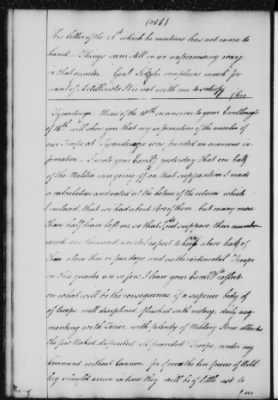 (186)
The letter of the 21st March he mentions has not come to
hand. Things seem still in an unpromising way
in that quarter. Genl Schyler complains much for
want of Artillerists It is not with me to satisfy
Ticonderoga. Mine of the 19th in answer to your Excellency's
of 18th will shew you that my information of the number of
our Troops at Ticonderoga was founded on erroneous in-
formation. I wrote your Excelly yesterday that one half
of the Militia were going off on that supposition I made
a calculation and noted at the bottom of the return which
I inclosed, that we had about of them but many more
than half have left us so that I must suppose their number
exceed one thousand nor do I expect to keep above half of
them above three or four days and as the continental Troops
in this quarter are so few I leave your Excelly to reflect
on what will be the consequence if a superior body of
of troops well disciplined flushed with victory, daily aug-
menting with Tories, with plenty of Military Stores attacks
the few Naked dispirited ill provided Troops, under my
command without Cannon, for if even the few pieces of Artil-
lery arrive in time they will be of little use to